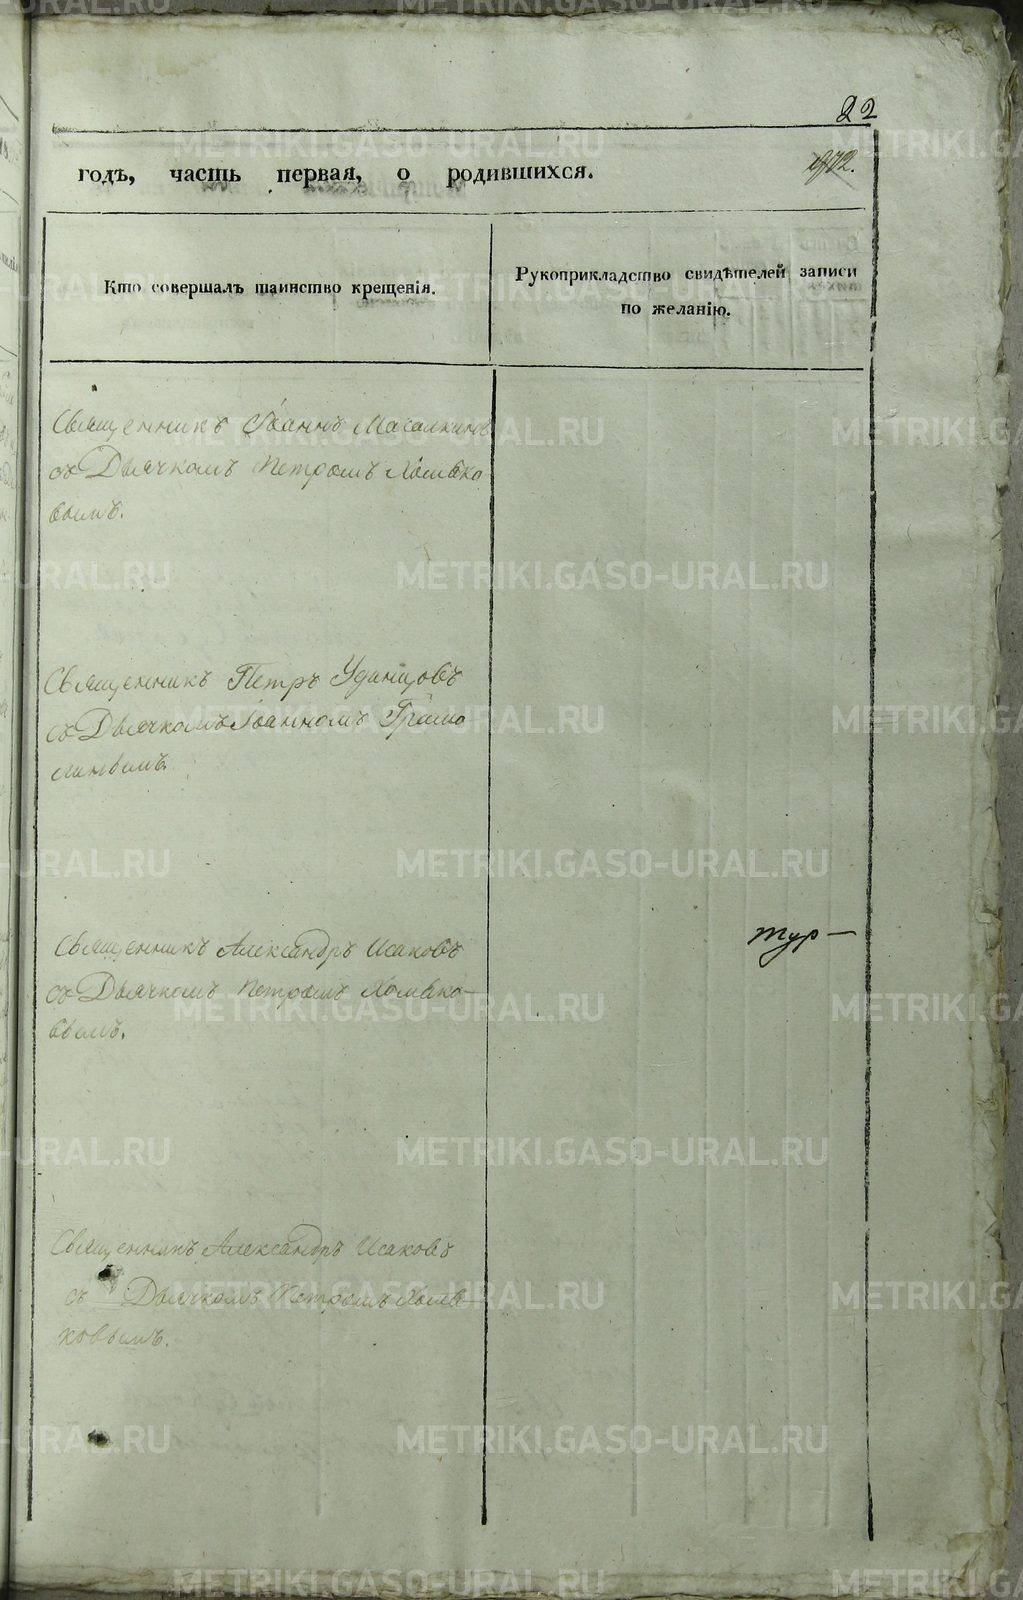 22
годъ, часть первая, о родившихся.
Кто совершалъ таинство крещенія.
Рукоприкладство свидѣтелей записи
по желанію.
Священникъ Іоаннъ
съ Дьячкомъ Петромъ Хомяко
вымъ.
Священникъ Петръ Удинцовъ
съ Дьячкомъ Іоанномъ
Священникъ Александръ Исаковъ
съ Дьячкомъ Петромъ Хомяко-
вымъ.
тур—
Священникъ Александръ Исаковъ
съ Дьячкомъ Петромъ Хомя
ковымъ.
METRIKI.GASO-URAL.RU